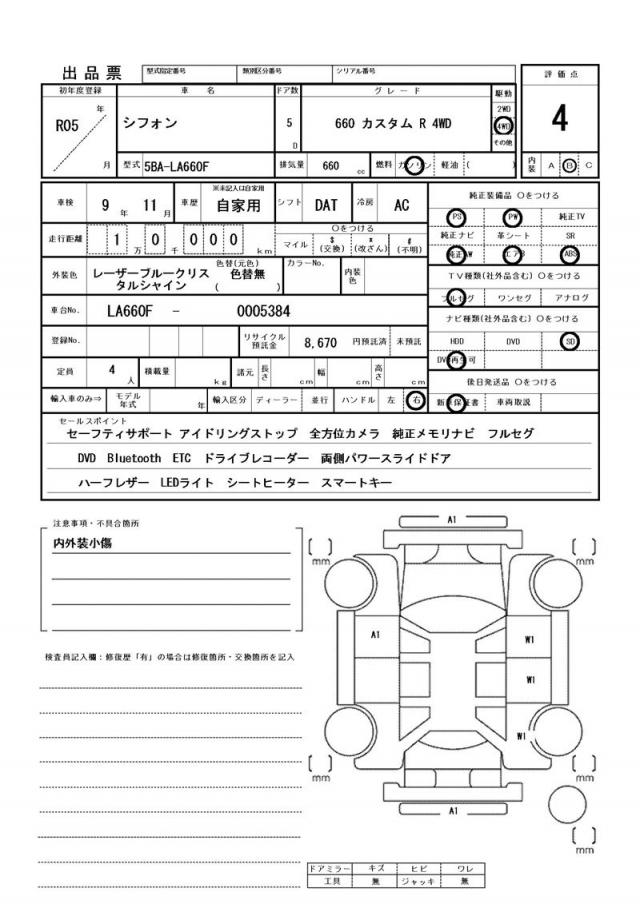 出品票
型式指定番号 類別区分番号 シリアル番号
評価点
4
内装 A B C
初年度登録 車名 ドア数 グレード 駆動
R05 年 月
シフォン
5 D
660 カスタム R 4WD
2WD
4WD
その他
型式 5BA-LA660F 排気量 660 cc 燃料 ガソリン 軽油 ( )
車検 9 年 11 月 車歴 ※未記入は自家用 自家用 シフト DAT 冷房 AC
走行距離 1 万 0 千 0 0 0 km
○をつける
マイル $ (交換) * (改ざん) # (不明)
外装色 レーザーブルークリスタルシャイン 色替(元色) 色替無 ( ) カラーNo. 内装色
車台No. LA660F - 0005384
登録No. リサイクル預託金 8,670 円預託済 未預託
定員 4 人 積載量 kg 諸元 長さ cm 幅 cm 高さ cm
輸入車のみ⇒ モデル年式 年 輸入区分 ディーラー 並行 ハンドル 左 右
純正装備品 ○をつける
PS PW 純正TV
純正ナビ 革シート SR
純正AW エアB ABS
TV種類(社外品含む) ○をつける
フルセグ ワンセグ アナログ
ナビ種類(社外品含む) ○をつける
HDD DVD SD
DVD再生可
後日発送品 ○をつける
新車保証書 車両取説
セールスポイント
セーフティサポート アイドリングストップ 全方位カメラ 純正メモリナビ フルセグ
DVD Bluetooth ETC ドライブレコーダー 両側パワースライドドア
ハーフレザー LEDライト シートヒーター スマートキー
注意事項・不具合箇所
内外装小傷
検査員記入欄:修復歴「有」の場合は修復箇所・交換箇所を記入
A1
mm
mm
A1 W1
W1
W1
mm
mm
A1
mm
ドアミラー キズ ヒビ ワレ
工具 無 ジャッキ 無